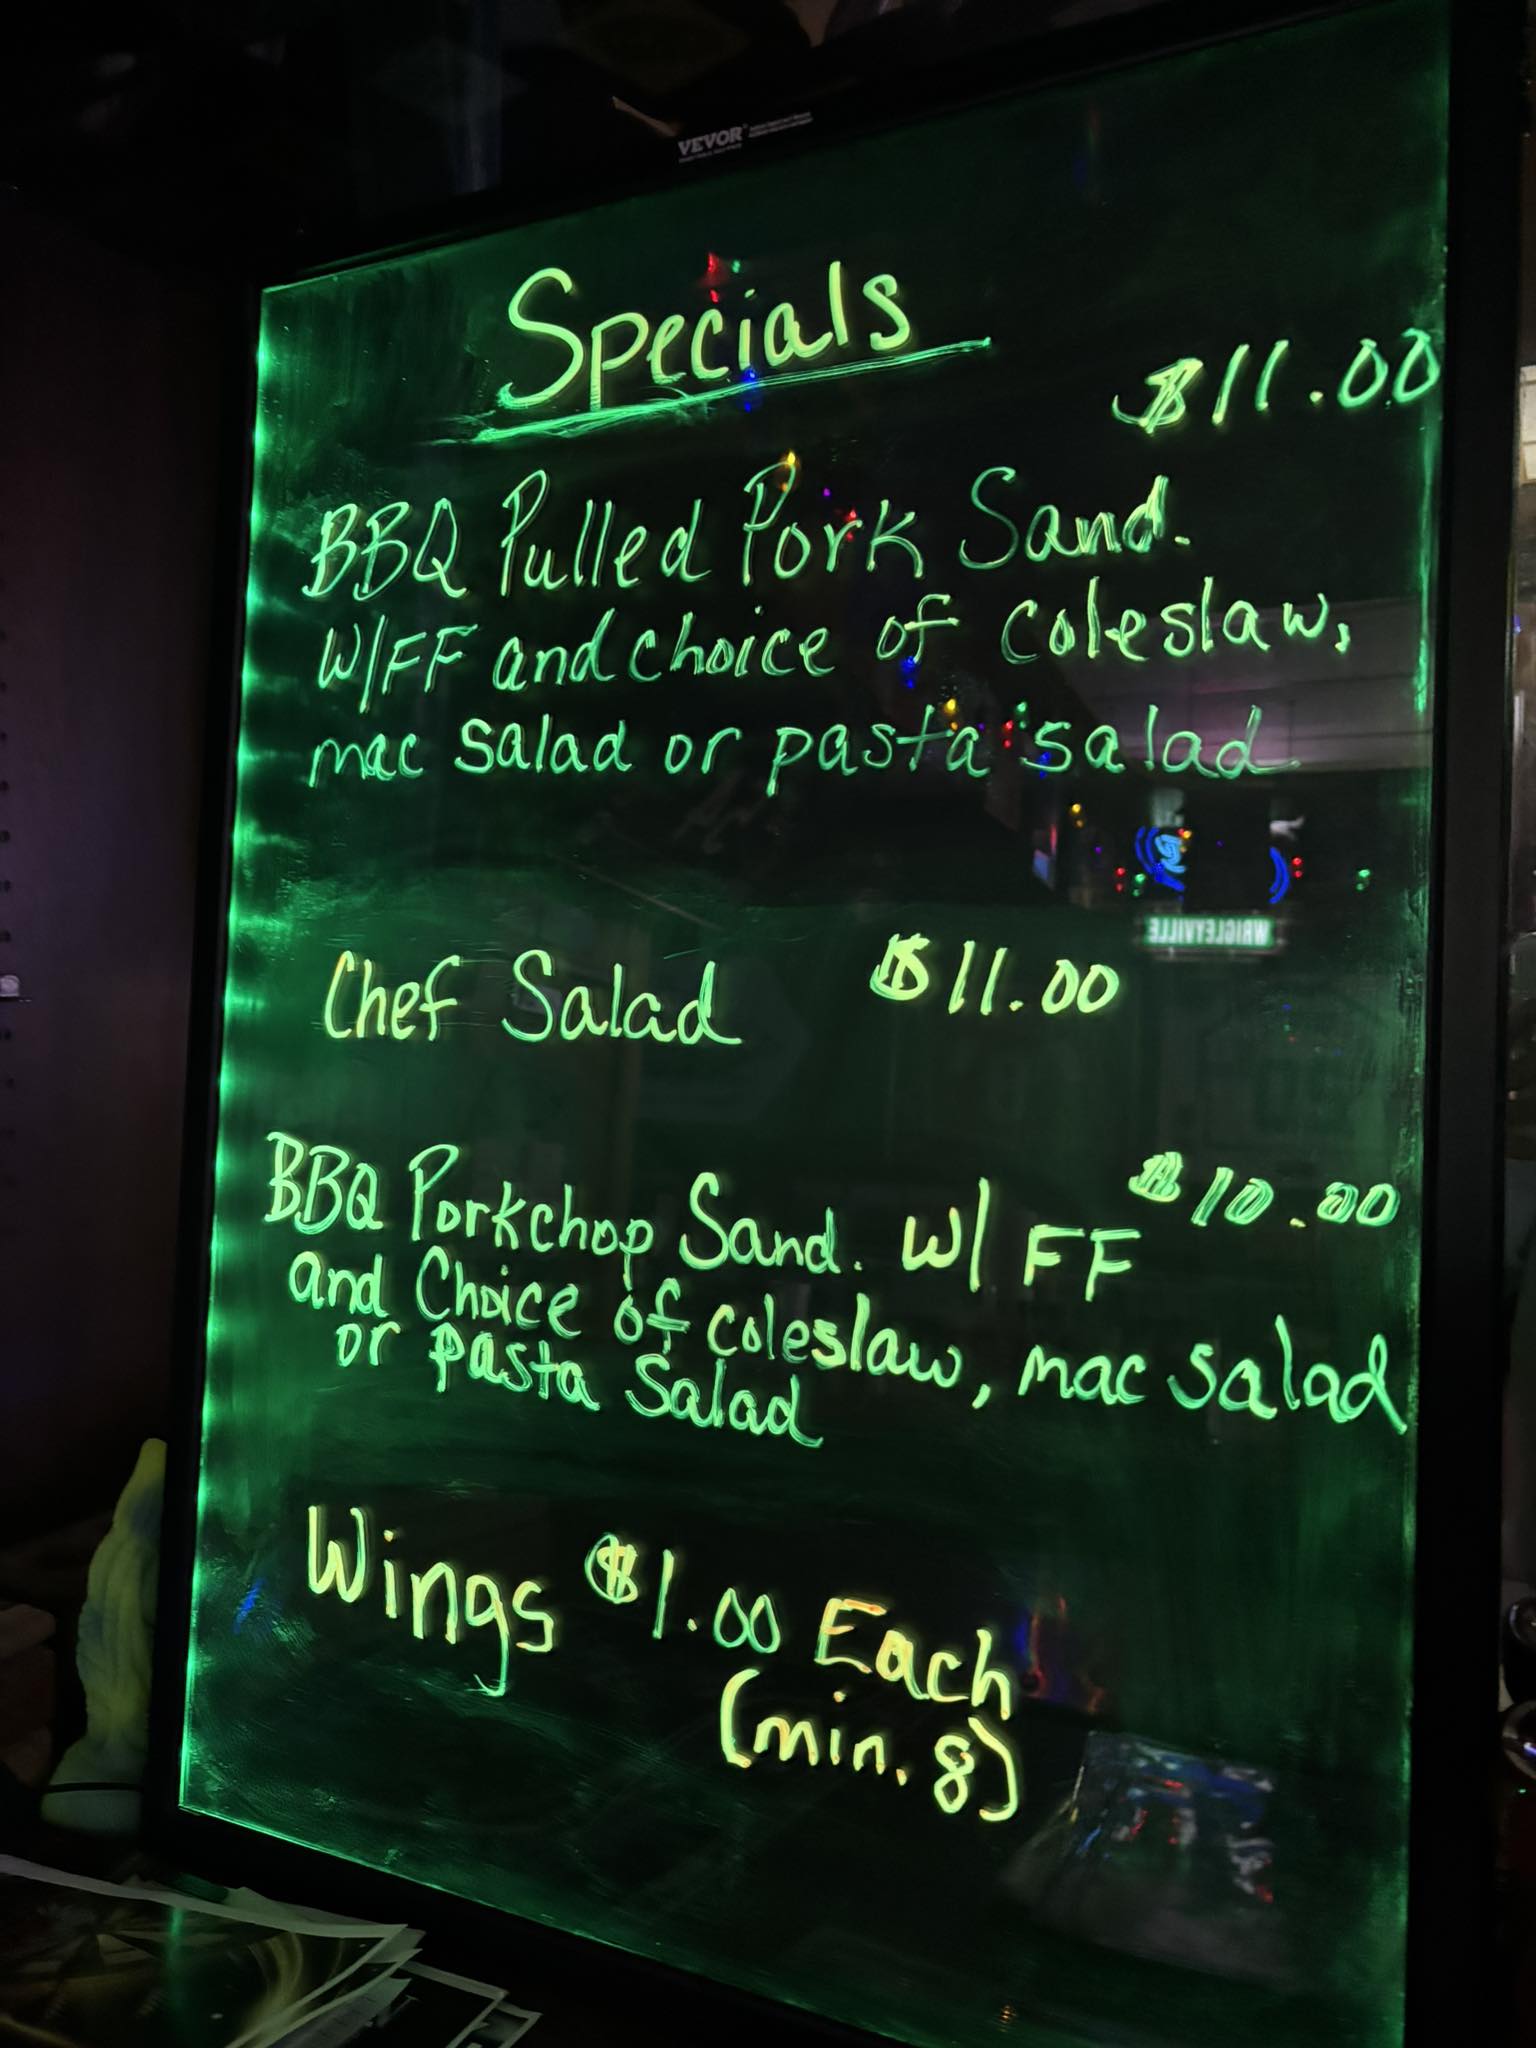 VEVOR
Specials
$11.00
BBQ Pulled Pork Sand.
W/FF and choice of coleslaw,
mac salad or pasta salad
WRIGLEYVILLE
Chef Salad $11.00
$10.00
BBQ Porkchop Sand. W/ FF
and Choice of coleslaw, mac salad
or pasta Salad
Wings $1.00 Each
(min. 8)